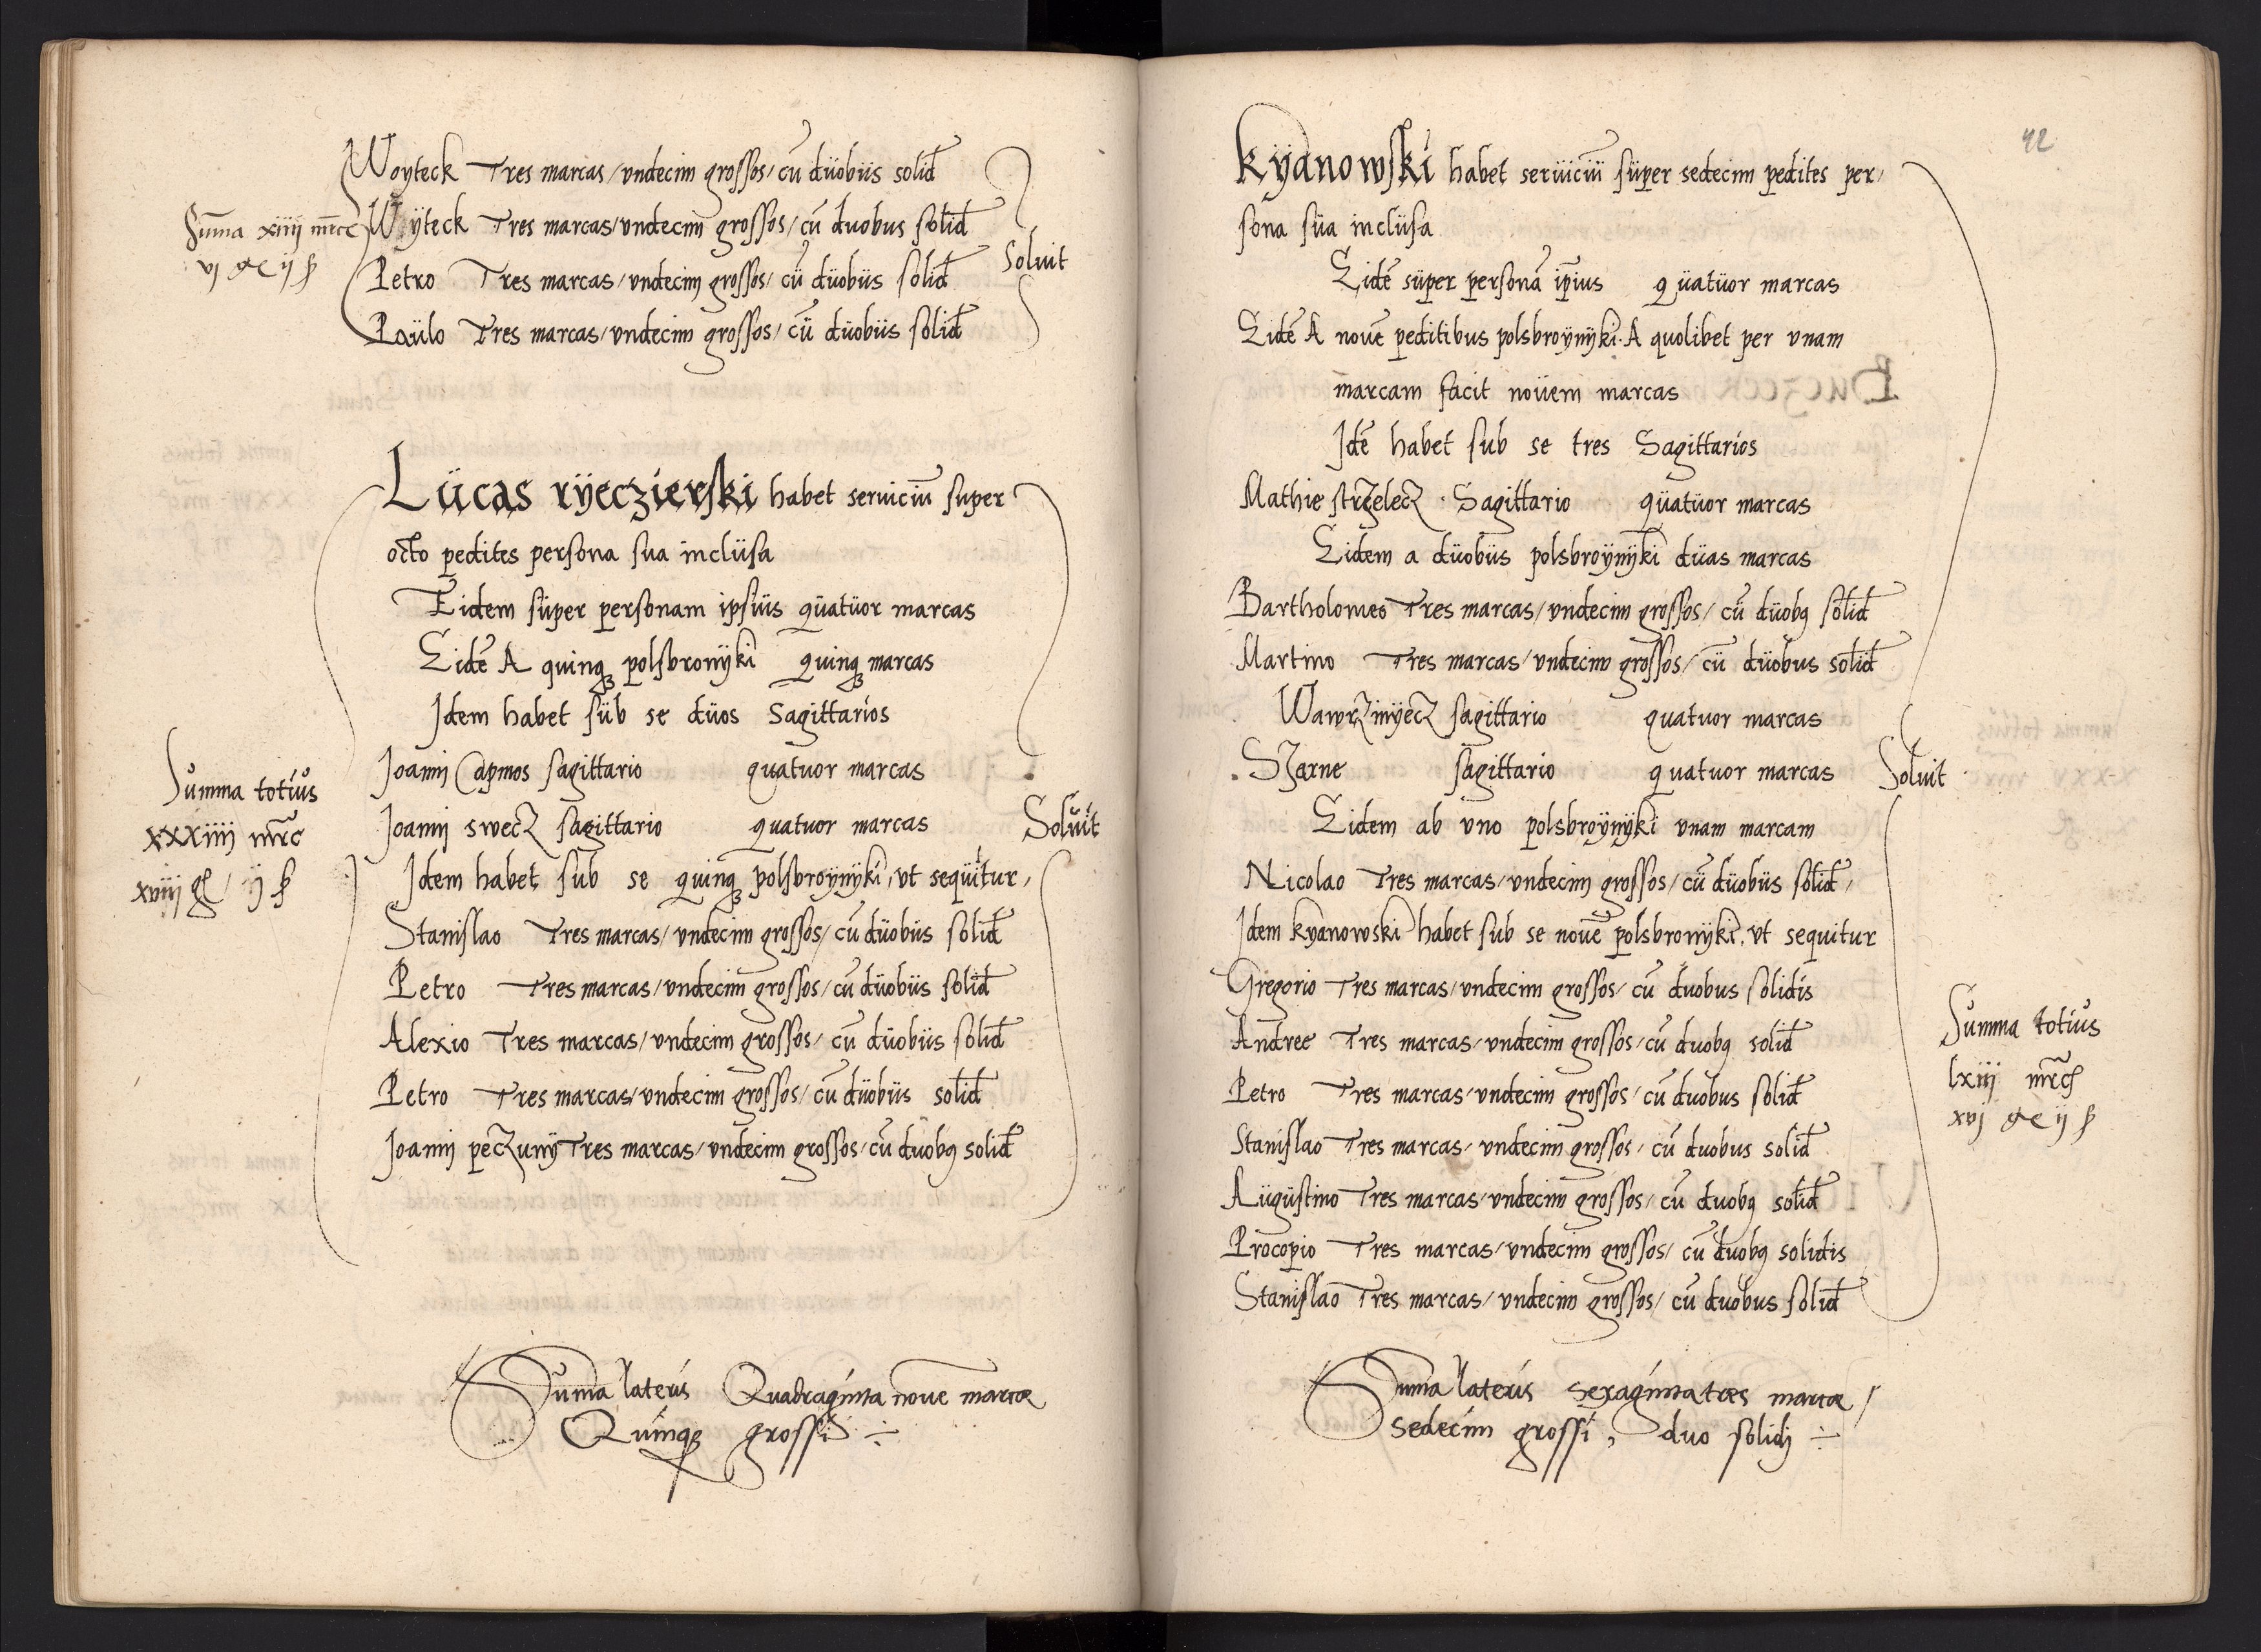 Woyteck Tres marcas/vndecim grossos/cū düobüs solid
Sum̄a xiiij mrc Woÿteck Tres marcas/vndecim grossos/cū duobus solid
vj gc ij ẞ
Petro Tres marcas/vndecim grossos/cū düobüs solid
Soluit
Paülo Tres marcas/vndecim grossos/cū düobüs solid
Lücas rÿeczierski habet seruiciū super
octo pedites persona sua inclüsa
Eidem süper personam ipsiüs qüatüor marcas
Eidē A quinqꝫ polsbronÿki quinqꝫ marcas
Idem habet süb se düos Sagittarios
Joanni Capmos sagittario quatuor marcas
Summa totius
xxxiiij mrc
xviij gͤ ij ẞ
Joanni swecz sagittario quatuor marcas
Soluit
Idem habet sub se quinqꝫ polsbroÿnÿki, vt sequitur,
Stanislao Tres marcas/vndecim grossos/cū düobüs solid
Petro Tres marcas/vndecim grossos/cū düobüs solid
Alexio Tres marcas/vndecim grossos/cū düobüs solid
Petro Tres marcas/vndecim grossos/cū düobüs solid
Joanni peczunÿ Tres marcas/vndecim grossos/cū duobꝰ solid
Sum̄a lateris Quadraginta noue marcæ
Quinqꝫ grossi ÷
42
Kÿanowski habet serüiciü süper sedecim pedites per/
sona süa inclüsa
Eidē süper personā ip̄ius qüatüor marcas
Eidē A nouē peditibus polsbroÿnÿki. A quolibet per vnam
marcam facit noüem marcas
Idē habet sub se tres Sagittarios
Mathie strzelecz. Sagittario qüatüor marcas
Eidem a düobüs polsbroÿnÿki düas marcas
Bartholomeo Tres marcas/vndecim grossos/cū düobꝰ solid
Martino Tres marcas/vndecim grossos/cū düobus solid
Wawrzinÿecz sagittario quatuor marcas
Szarne sagittario quatuor marcas
Soluit
Eidem ab vno polsbroÿnÿki vnam marcam
Nicolao Tres marcas/vndecim grossos/cū düobüs solid/
Idem kÿanowski habet sub se nouē polsbronÿki, vt sequitur
Gregorio Tres marcas/vndecim grossos/cū duobus solidis
Andree Tres marcas/vndecim grossos/cū duobꝰ solid
Summa totius
lxiij mrcͭ
xvj gc ij ẞ
Petro Tres marcas/vndecim grossos/cū duobus solid
Stanislao Tres marcas/vndecim grossos/cū duobus solid
Aügüstino Tres marcas/vndecim grossos/cū duobꝰ solid
Procopio Tres marcas/vndecim grossos/cū duobꝰ solidis
Stanislao Tres marcas/vndecim grossos/cū duobus solid
Sum̄a lateris sexaginta tres marcæ/
sedecim grossi, duo solidj ÷